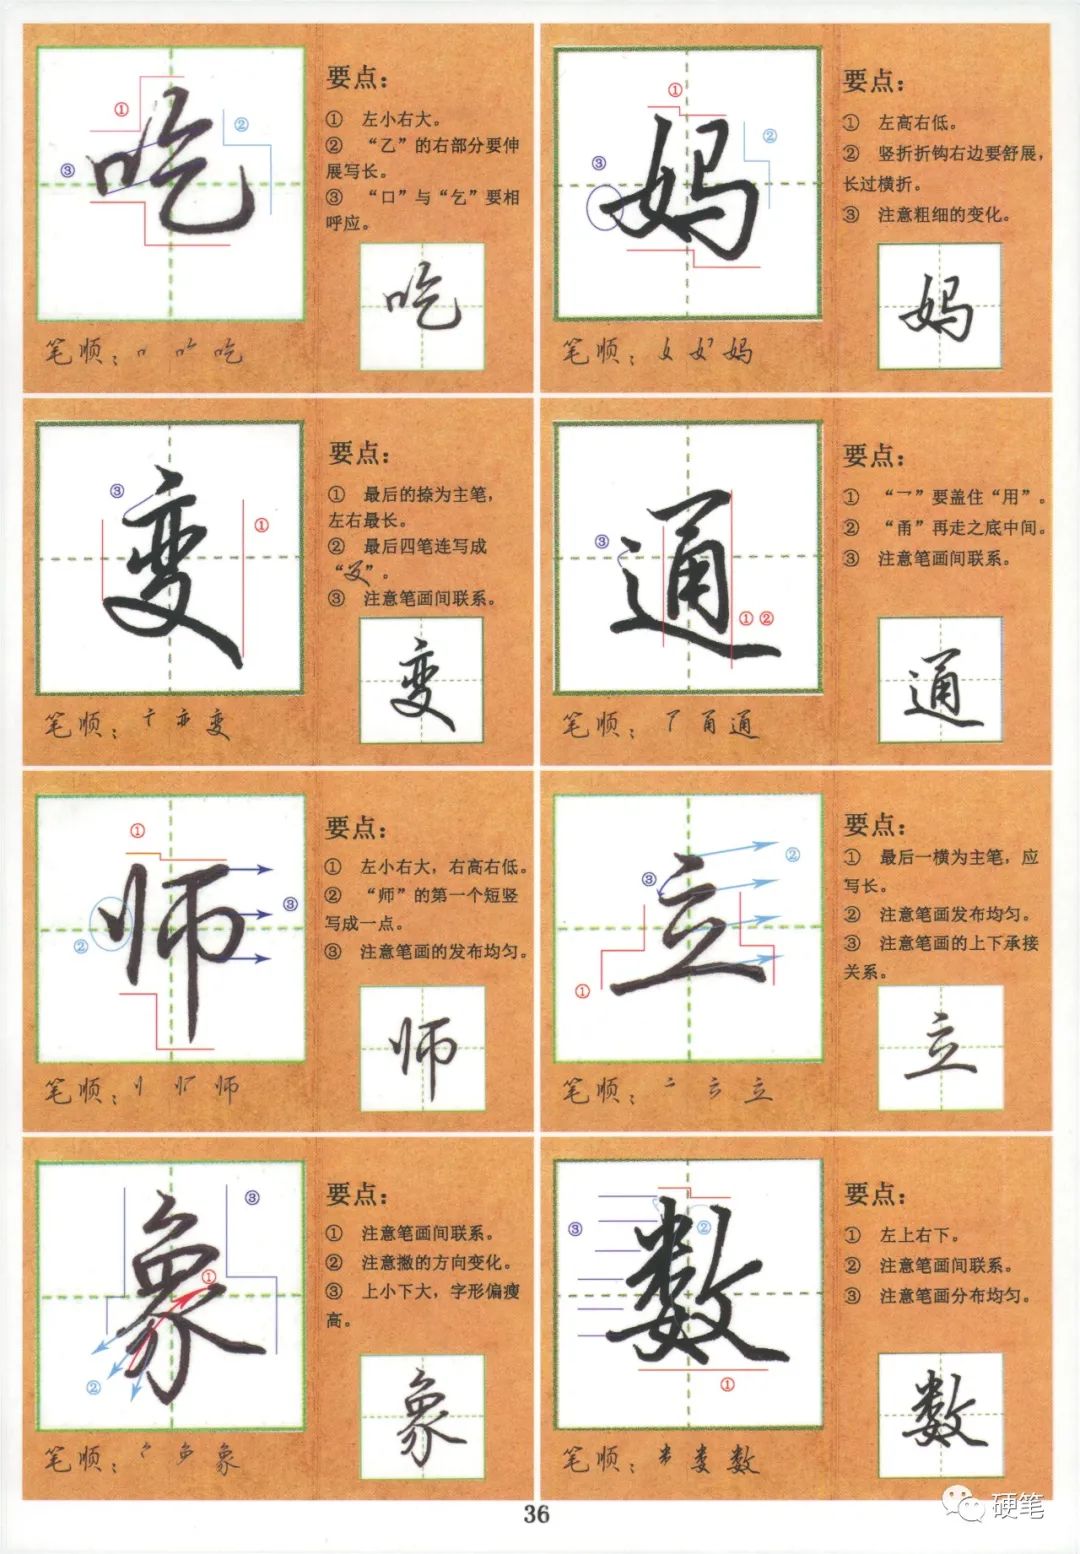 吃
①
②
③
要点：
① 左小右大。
② “乙”的右部分要伸
展写长。
③ “口”与“乞”要相
呼应。
吃
笔顺：口 吃
妈
①
②
③
要点：
① 左高右低。
② 竖折折钩右边要舒展，
长过横折。
③ 注意粗细的变化。
妈
笔顺：妈
变
③
①
要点：
① 最后的捺为主笔，
左右最长。
② 最后四笔连写成
“”。
③ 注意笔画间联系。
变
笔顺：亠 亦 变
通
③
①②
要点：
① “乛”要盖住“用”。
② “甬”再走之底中间。
③ 注意笔画间联系。
通
笔顺：甬 通
师
①
②
③
要点：
① 左小右大，右高右低。
② “师”的第一个短竖
写成一点。
③ 注意笔画的发布均匀。
师
笔顺：师
立
②
③
①
要点：
① 最后一横为主笔，应
写长。
② 注意笔画发布均匀。
③ 注意笔画的上下承接
关系。
立
笔顺：立
象
③
①
②
要点：
① 注意笔画间联系。
② 注意撇的方向变化。
③ 上小下大，字形偏瘦
高。
象
笔顺：象
数
③
②
①
要点：
① 左上右下。
② 注意笔画间联系。
③ 注意笔画分布均匀。
数
笔顺：米 娄 数
36
硬笔